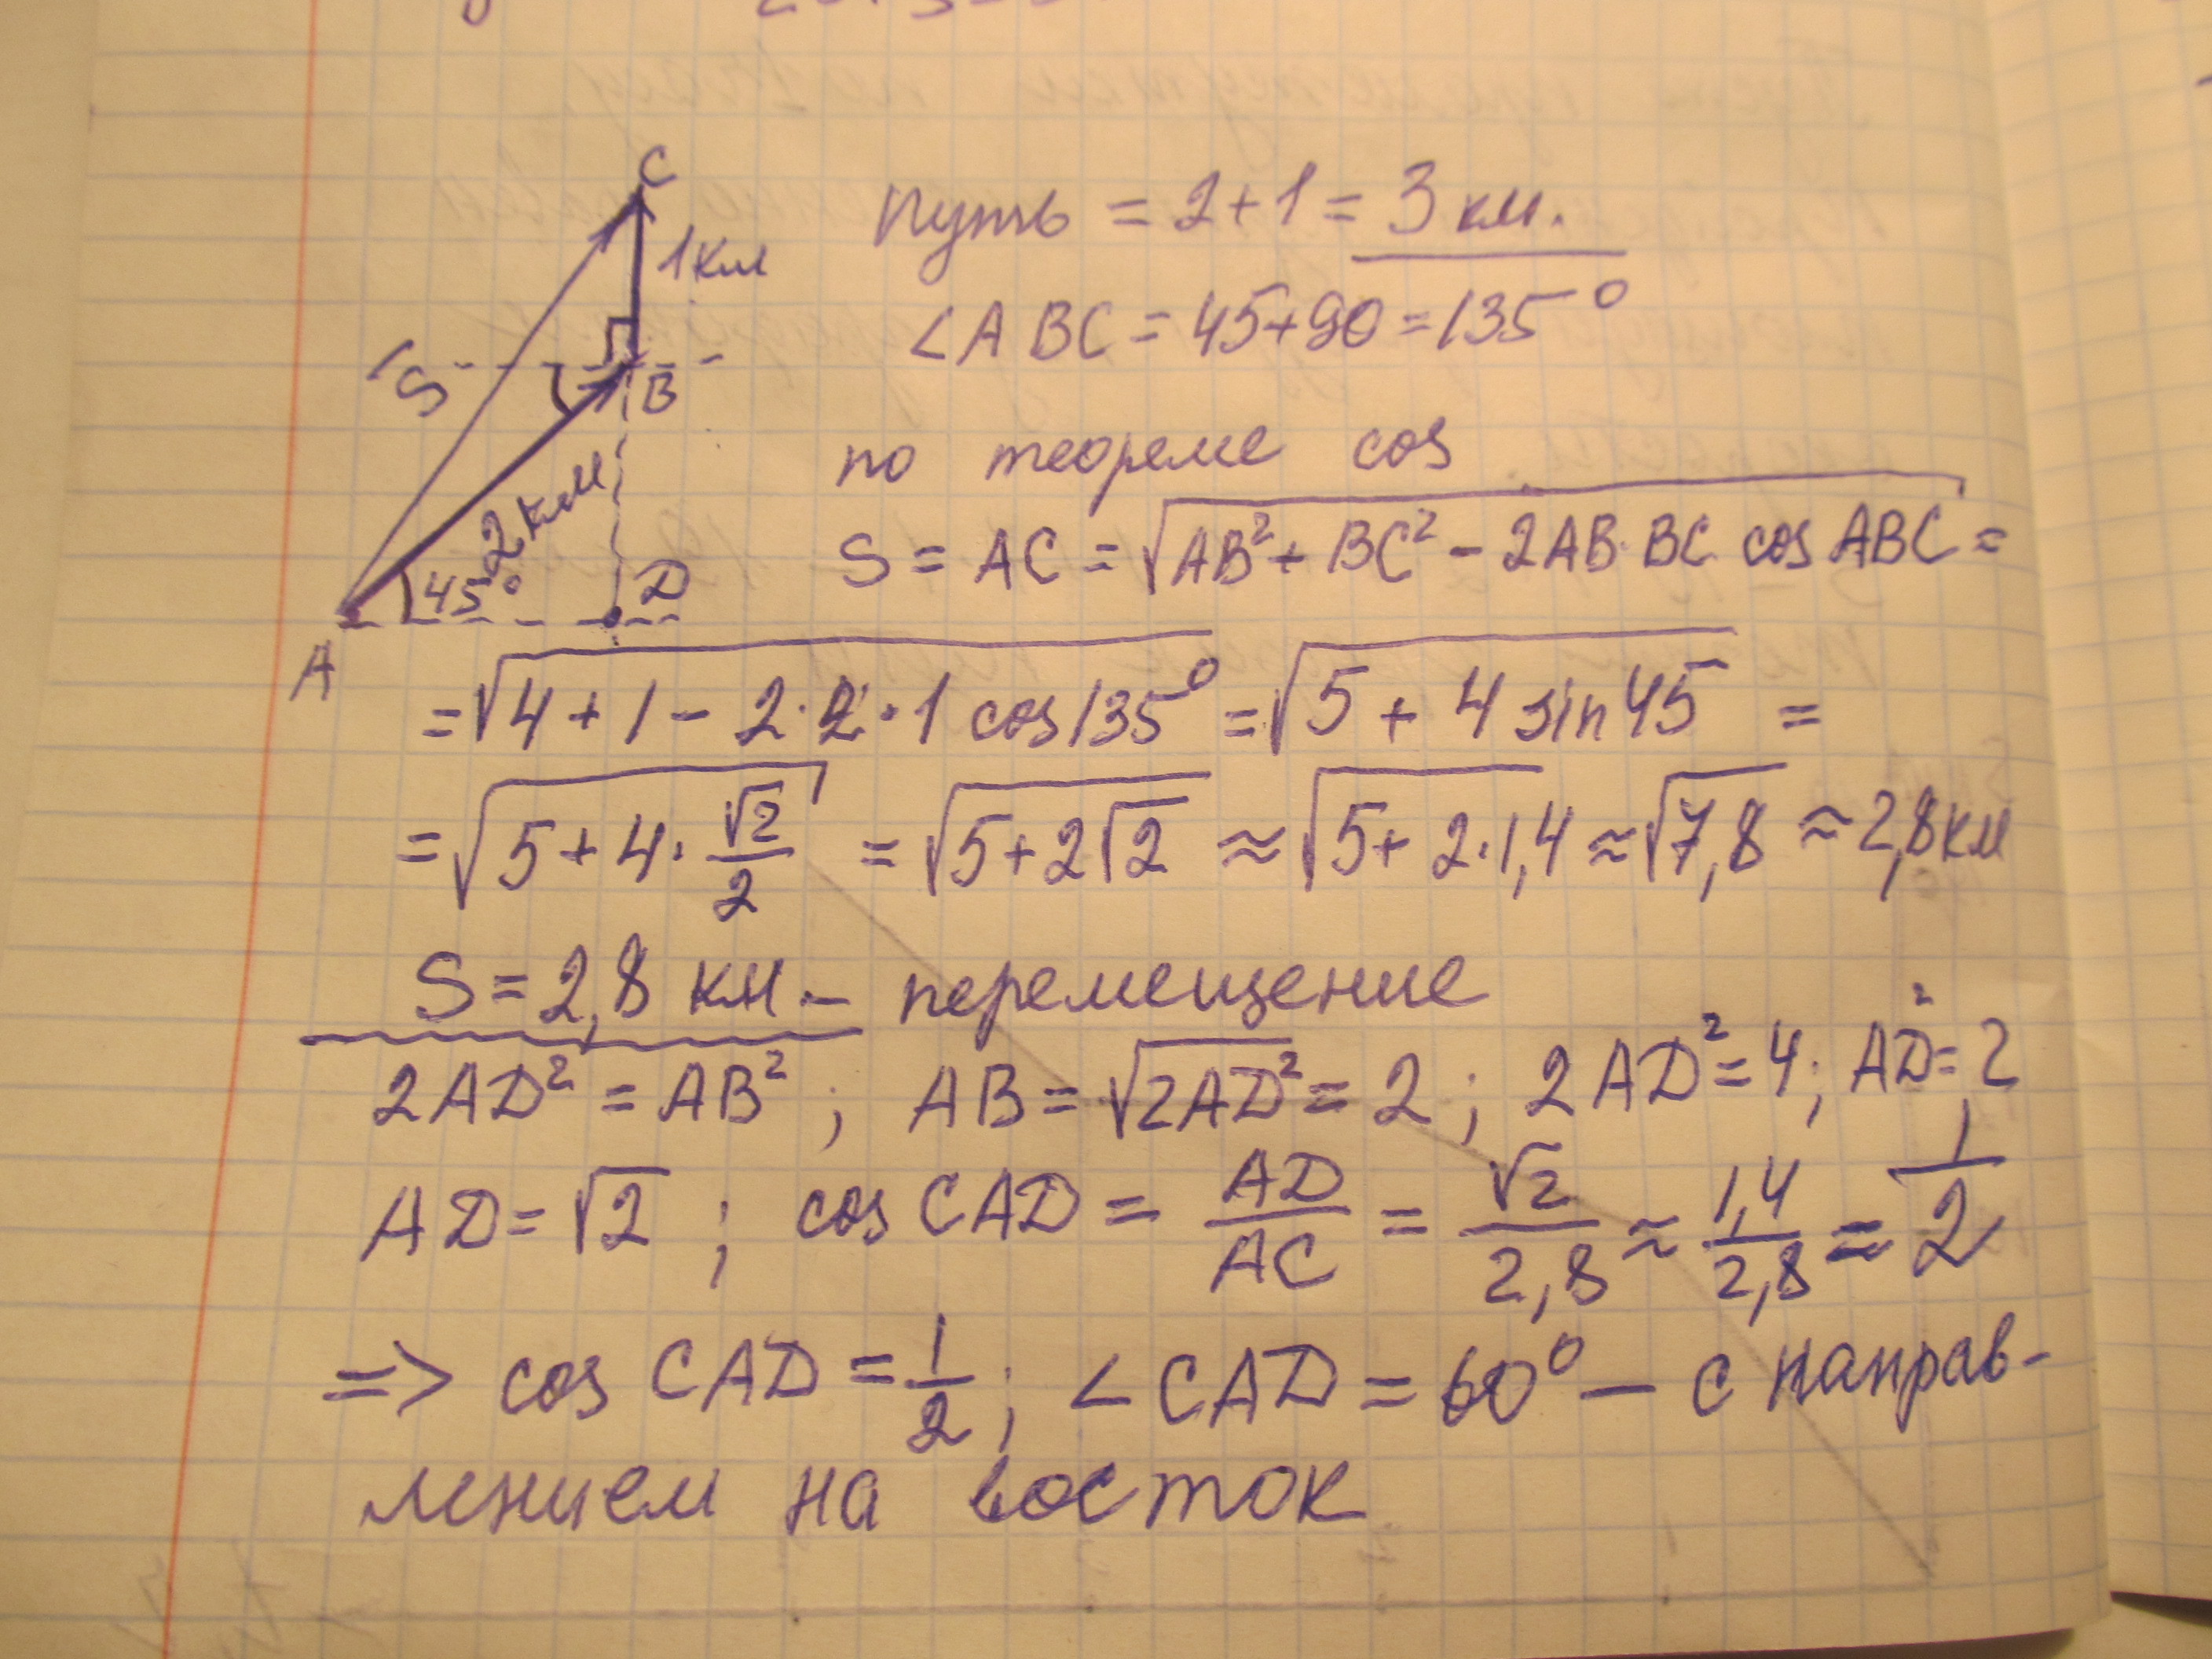 C
1км
S
B
2км
45°
D
A
Путь = 2+1 = 3 км.
<ABC = 45+90 = 135°
по теореме cos
S = AC = √AB²+BC²-2AB·BC cos ABC =
= √4+1-2·2·1 cos135° = √5+4 sin45 =
= √5+4·√2/2 = √5+2√2 ≈ √5+2·1,4 ≈ √7,8 ≈ 2,8км
S = 2,8 км. – перемещение
2AD² = AB² ; AB = √2AD² = 2 ; 2AD² = 4; AD² = 2
AD = √2 ; cos CAD = AD/AC = √2/2,8 ≈ 1,4/2,8 = 1/2
=> cos CAD = 1/2 ; <CAD = 60° – с направ-
лением на восток